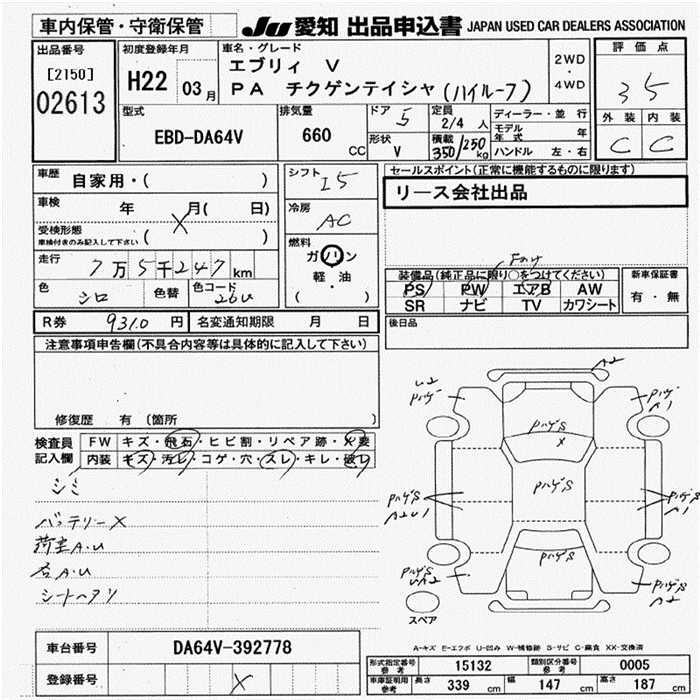 車内保管・守衛保管
JU 愛知 出品申込書 JAPAN USED CAR DEALERS ASSOCIATION
出品番号
[2150]
02613
初度登録年月
H22 03月
車名・グレード
エブリィ V
PA チクゲンテイシャ(ハイルーフ)
2WD
・
4WD
評価点
35
外装 内装
C C
型式
EBD-DA64V
排気量
660 CC
ドア 5
形状 V
定員 2/4 人
積載 350/250 kg
ディーラー・並行
モデル年式 年
ハンドル 左・右
車歴 自家用・( )
車検 年 X 月( 日)
受検形態
車検付きのみ記入して下さい ( )
走行 7万5千247km
色 シロ 色替 色コード 26U
シフト I5
冷房 AC
燃料
ガソリン
軽・油
( )
セールスポイント(正常に機能するものに限ります)
リース会社出品
装備品(純正品に限り○をつけてください)
PS PW エアB AW
SR ナビ TV カワシート
新車保証書
有・無
後日品
R券 9310 円 名変通知期限 月 日
注意事項申告欄(不具合内容等は具体的に記入して下さい)
修復歴 有 〔箇所 〕
検査員記入欄
FW キズ・飛石・ヒビ割・リペア跡・X要
内装 キズ・汚レ・コゲ・穴・スレ・キレ・破レ
シミ
バッテリーX
荷室A.U
各A.U
シートヘタリ
U2
ハゲ
A2
ハゲ
A1
ハゲS
X
ハゲS
ハゲS
A2U1
ハゲS
A1
ハゲS
ハゲS
UA2
ハゲS
A2
スペア
A-キズ E-エクボ U-凹み W-補修跡 S-サビ C-腐食 XX-交換済
車台番号 DA64V-392778
登録番号 X
形式指定番号 参考 15132 類別区分番号 参考 0005
車庫証明用 参考 長さ 339 cm 幅 147 cm 高さ 187 cm